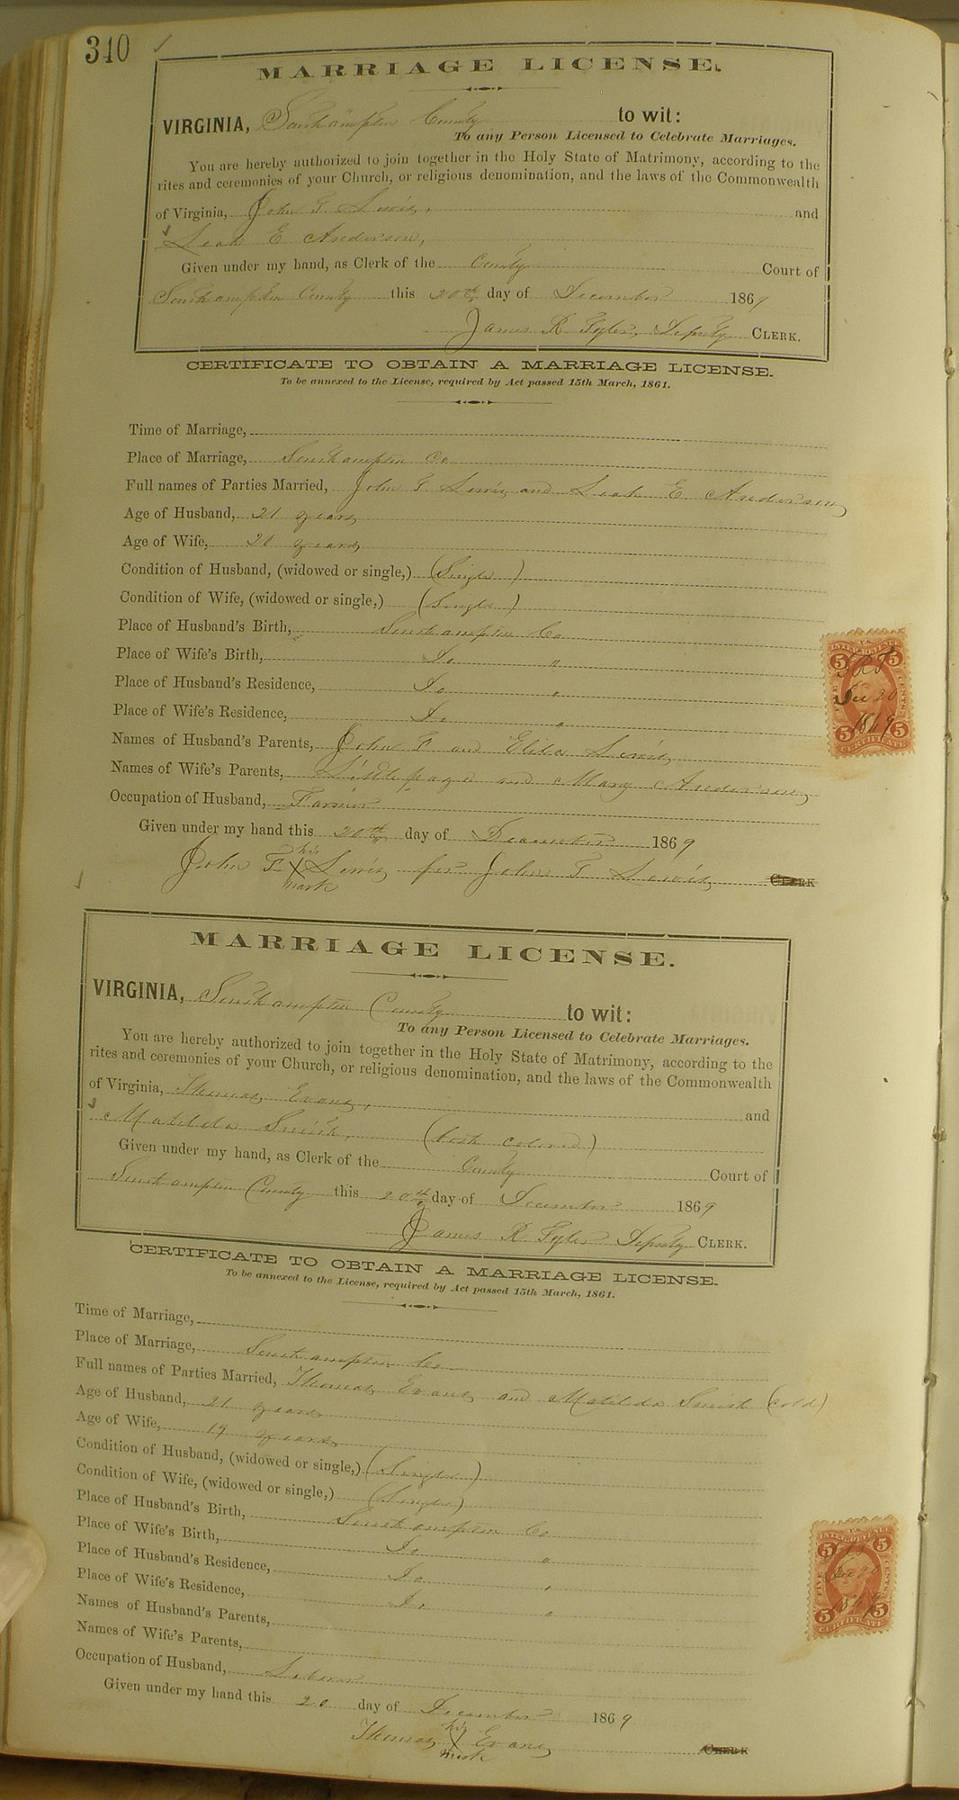 340
MARRIAGE LICENSE.
VIRGINIA, Southampton County to wit:
To any Person Licensed to Celebrate Marriages.
You are hereby authorized to join together in the Holy State of Matrimony, according to the
rites and ceremonies of your Church, or religious denomination, and the laws of the Commonwealth
of Virginia, John T. Lewis, and
Leah E Anderson,
Given under my hand, as Clerk of the County Court of
Southampton County this 20th day of December 1869
James R Tyler, Deputy CLERK.
CERTIFICATE TO OBTAIN A MARRIAGE LICENSE.
To be annexed to the License, required by Act passed 15th March, 1861.
Time of Marriage,
Place of Marriage, Southampton Co
Full names of Parties Married, John T Lewis and Leah E. Anderson
Age of Husband, 21 years
Age of Wife, years
Condition of Husband, (widowed or single,) (Single)
Condition of Wife, (widowed or single,) (Single)
Place of Husband's Birth, Southampton Co
Place of Wife's Birth, Do "
Place of Husband's Residence, Do "
Place of Wife's Residence, Do "
Names of Husband's Parents, John F and Eliza Lewis
Names of Wife's Parents, Littlepage and Mary Anderson
Occupation of Husband, Farmer
Given under my hand this 20th day of December 1869
his
John F X Lewis for John T Lewis CLERK
mark
5 INTER. REVENUE 5
Dec 20
1869
FIVE CENTS
5 CERTIFICATE 5
MARRIAGE LICENSE.
VIRGINIA, Southampton County to wit:
To any Person Licensed to Celebrate Marriages.
You are hereby authorized to join together in the Holy State of Matrimony, according to the
rites and ceremonies of your Church, or religious denomination, and the laws of the Commonwealth
of Virginia, Thomas Evans, and
Matilda Smith, (both colored)
Given under my hand, as Clerk of the County Court of
Southampton County this 20th day of December 1869
James R Tyler Deputy CLERK.
CERTIFICATE TO OBTAIN A MARRIAGE LICENSE.
To be annexed to the License, required by Act passed 15th March, 1861.
Time of Marriage,
Place of Marriage, Southampton Co
Full names of Parties Married, Thomas Evans and Matilda Smith (cold)
Age of Husband, 21 years
Age of Wife, 19 years
Condition of Husband, (widowed or single,) (Single)
Condition of Wife, (widowed or single,) (Single)
Place of Husband's Birth, Southampton Co
Place of Wife's Birth, Do "
Place of Husband's Residence, Do "
Place of Wife's Residence, Do "
Names of Husband's Parents,
Names of Wife's Parents,
Occupation of Husband, Laborer
Given under my hand this 20 day of December 1869
his
Thomas X Evans CLERK
mark
5 INTER. REVENUE 5
1869
FIVE CENTS
5 CERTIFICATE 5